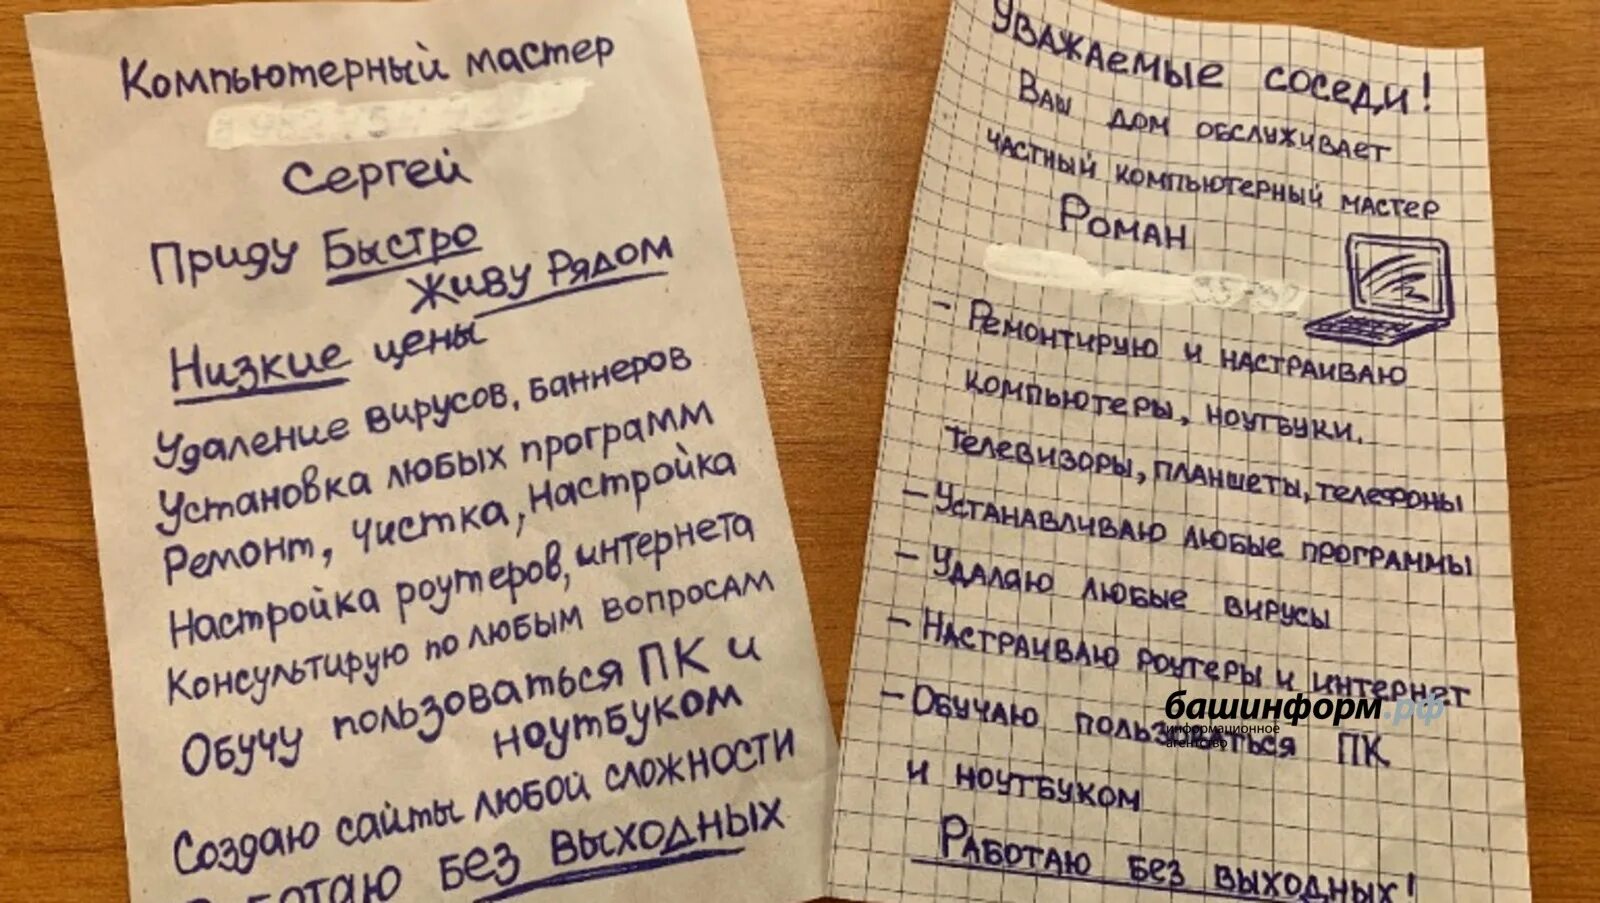 Компьютерный мастер
Сергей
Приду Быстро
Живу Рядом
Низкие цены
Удаление вирусов, баннеров
Установка любых программ
Ремонт, Чистка, Настройка
Настройка роутеров, интернета
Консультирую по любым вопросам
Обучу пользоваться ПК и
ноутбуком
Создаю сайты любой сложности
Работаю без выходных
Уважаемые соседи!
Ваш дом обслуживает
частный компьютерный мастер
Роман
- Ремонтирую и настраиваю
компьютеры, ноутбуки.
телевизоры, планшеты, телефоны
- Устанавливаю любые программы
- Удаляю любые вирусы
- Настраиваю роутеры и интернет
- Обучаю пользоваться ПК
и ноутбуком
Работаю без выходных!
башинформ.рф
информационное
агентство